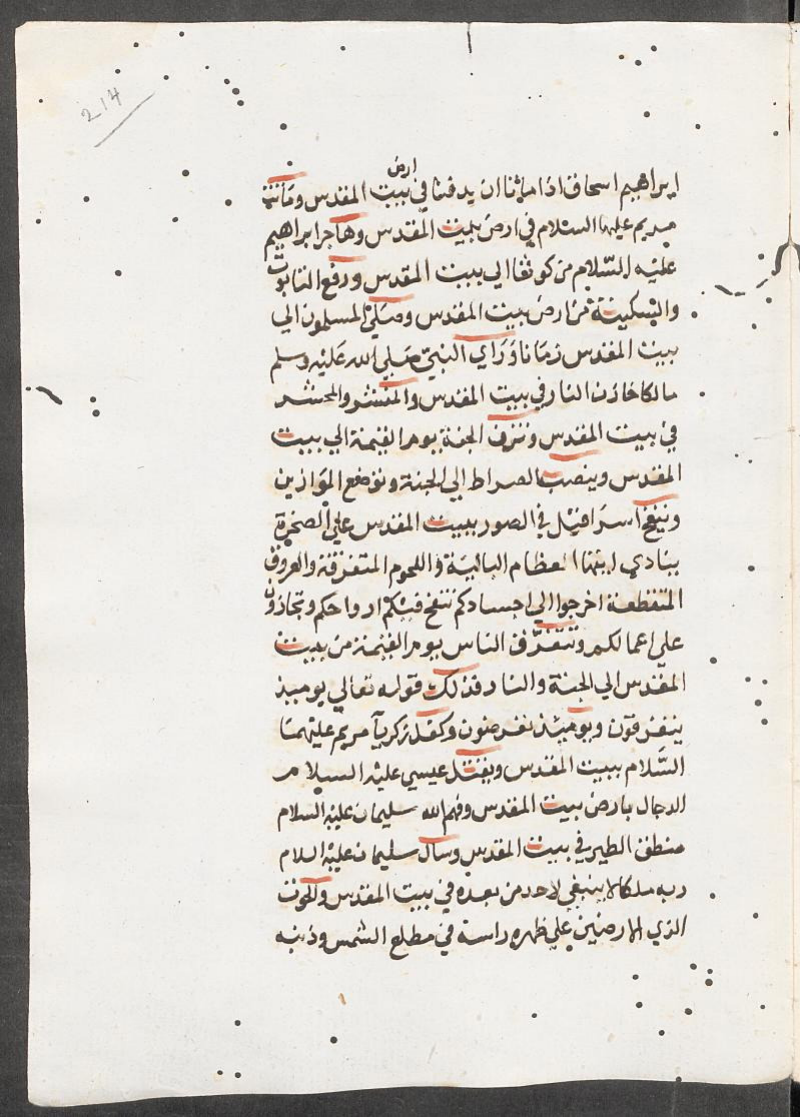 214
ارض
ابراهيم اسحاق اذا ماتنا ان يدفنا في بيت المقدس وماتت
مريم عليها السلام في ارض بيت المقدس وهاجر ابراهيم
عليه السّلام من كوثا الي بيت المقدس ورفع التابوت
والسكينة من ارض بيت المقدس وصلي المسلمون الي
بيت المقدس زمانا وراي النبيّ صلي الله عليه وسلم
مالكا خازن النار في بيت المقدس والمنشر والمحشر
في بيت المقدس وتزف الجنة يوم القيمة الي بيت
المقدس وينصب الصراط الي الجنة وتوضع الموازين
وينفخ اسرافيل في الصور ببيت المقدس علي الصخرة
ينادي ايتها العظام البالية واللحوم المتفرقة والعروق
المتقطعة اخرجوا الي اجسادكم ننفخ فيكم ارواحكم وتجازون
علي اعمالكم وتتفرّق الناس يوم القيمة من بيت
المقدس الي الجنة والنار فذلك قوله تعالي يوميذ
يتفرقون ويوميذ تعرضون وكفل زكريآ مريم عليهما
السّلام ببيت المقدس ويقتل عيسي عليه السلام
الدجال بارض بيت المقدس وفهم الله سليمان عليه السلام
منطق الطير في بيت المقدس وسال سليمان عليه السلام
ربه ملكا لا ينبغي لاحد من بعده في بيت المقدس والحوت
الذي الارضين علي ظهره راسه في مطلع الشمس وذنبه